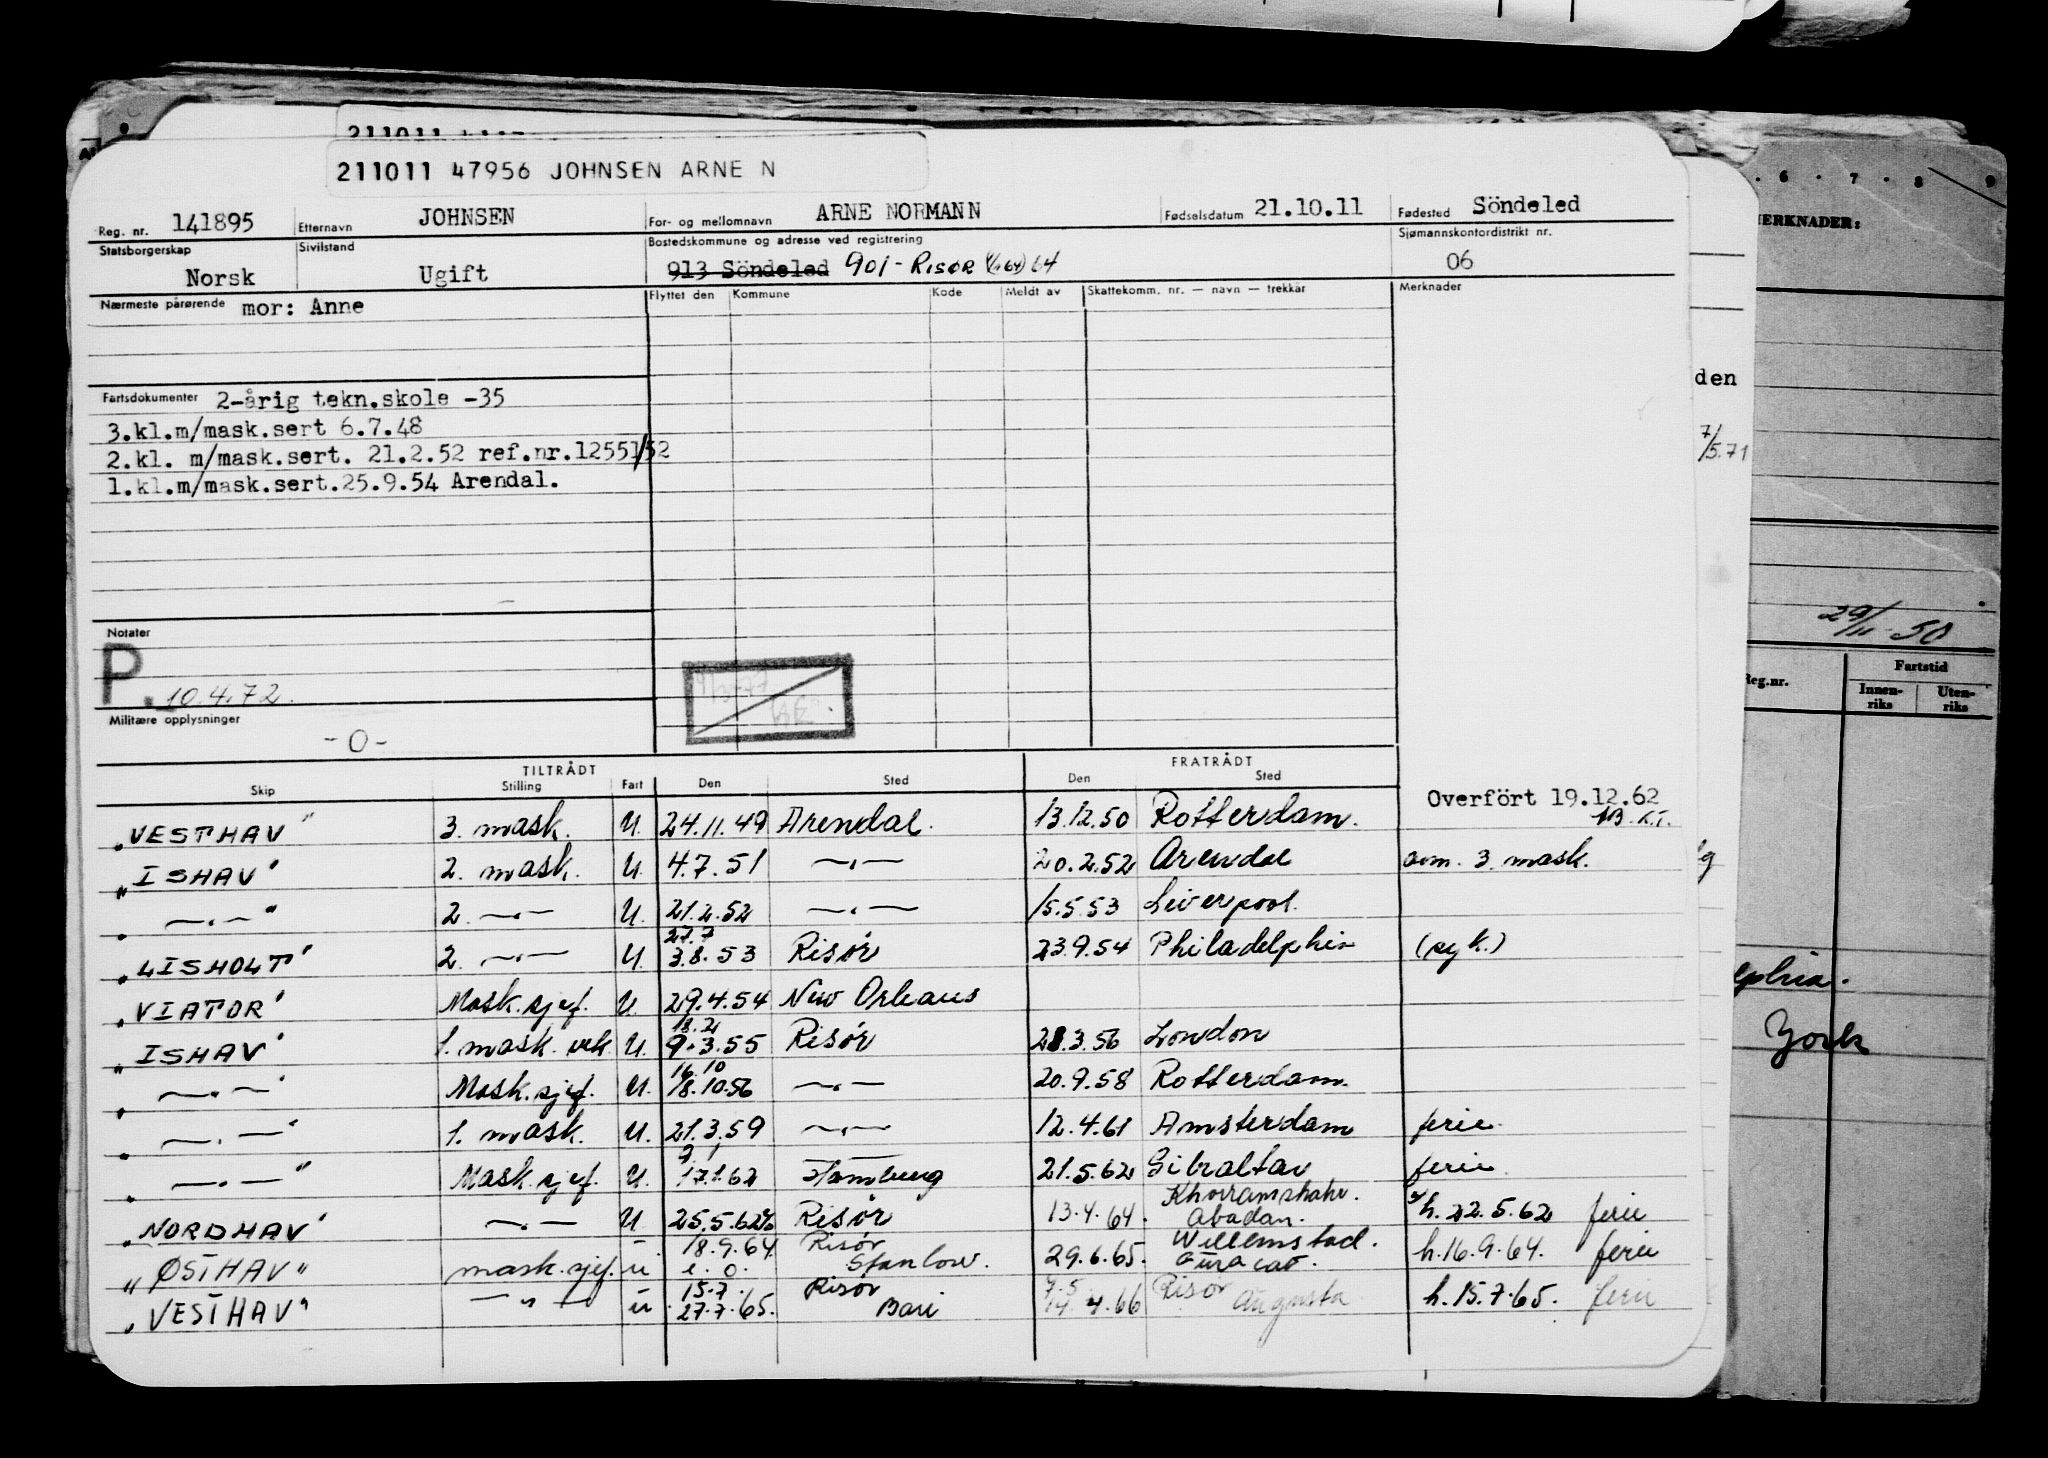 211011 47956 JOHNSEN ARNE N
Reg. nr. 141895 Etternavn JOHNSEN For- og mellomnavn ARNE NORMANN Fødselsdatum 21.10.11 Fødested Söndeled
Statsborgerskap Norsk Sivilstand Ugift Bostedskommune og adresse ved registrering 913 Söndeled 901 - RISØR Sjømannskontordistrikt nr. 06
Nærmeste pårørende mor: Anne Flyttet den Kommune Kode Meldt av Skattekomm. nr. — navn — trekkår Merknader
Fartsdokumenter 2-årig tekn.skole -35
3.kl.m/mask.sert 6.7.48
2.kl. m/mask.sert. 21.2.52 ref.nr.12551/52
1.kl.m/mask.sert.25.9.54 Arendal.
Notater
P. 10.4.72.
Militære opplysninger
-0-
TILTRÅDT FRATRÅDT
Skip Stilling Fart Den Sted Den Sted
Overfört 19.12.62
"VESTHAV" 3. mask. U. 24.11.49 Arendal. 13.12.50 Rotterdam.
"ISHAV" 2. mask. U. 4.7.51 —.— 20.2.52 Arendal avm. 3. mask.
" —.— " 2. —.— U. 21.2.52 —.— 15.5.53 Liverpool.
27.7
"LISHOLT" 2. —.— U. 3.8.53 Risør 23.9.54 Philadelphia (syk.)
"VIATOR" Mask.sjef. U. 29.4.54 New Orleans
18.2
"ISHAV" 1. mask. vik U. 9.3.55 Risør 28.3.56 London
16.10
" —.— " Mask.sjef. U. 18.10.56 —.— 20.9.58 Rotterdam.
" —.— " 1. mask. U. 21.3.59 —.— 12.4.61 Amsterdam ferie.
" —.— " Mask.sjef. U. 17.1.62 Hamburg 21.5.62 Gibraltar ferie
Khorramshahr.
"NORDHAV" —.— U. 25.5.62 Risør 13.4.64. Abadan. h.22.5.62 ferie
18.9.64 Risør Willemstad.
"ØSTHAV" mask.sjef. u e.o. Stanlow. 29.6.65. Curacao. h.16.9.64. ferie
15.7. Risør 7.5 Risør
"VESTHAV" — " — u 27.7.65. Bari 14.4.66 Augusta h.15.7.65. ferie
6 . 7 . 8 . 9
MERKNADER:
den
7/5.71
29/11-50
Reg.nr. Fartstid
Innenriks Utenriks
York